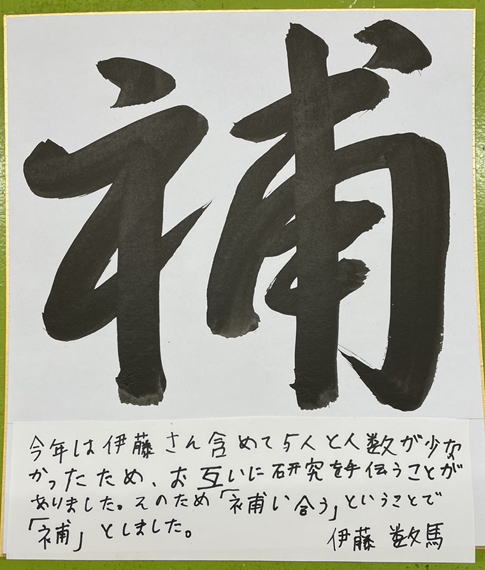 補
今年は伊藤さん含めて5人と人数が少な
かったため、お互いに研究を手伝うことが
ありました。そのため「補い合う」ということで
「補」としました。
伊藤 数馬